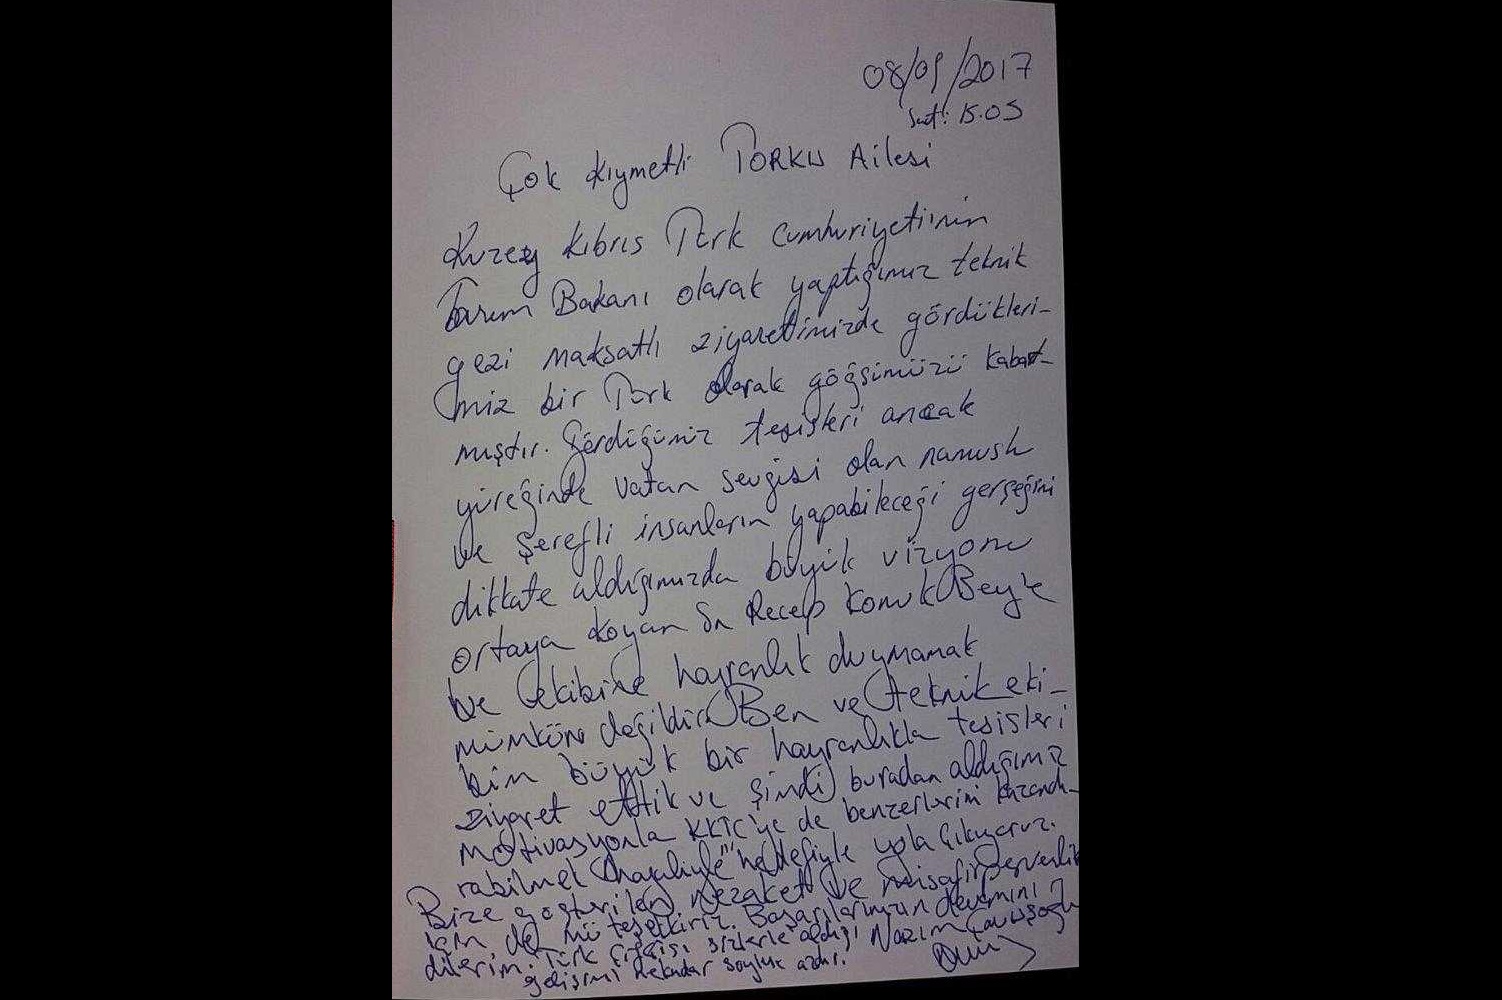 08/09/2017
Saat: 15.05
Çok kıymetli TORKU Ailesi
Kuzey Kıbrıs Türk Cumhuriyetinin
Tarım Bakanı olarak yaptığımız teknik
gezi maksatlı ziyaretimizde gördükleri-
miz bir Türk olarak göğsümüzü kabart-
mıştır. Gördüğümüz tesisleri ancak
yüreğinde vatan sevgisi olan namuslu
ve şerefli insanların yapabileceği gerçeğini
dikkate aldığımızda büyük vizyonu
ortaya koyan Sn Recep Konuk Bey'e
ve ekibine hayranlık duymamak
mümkün değildir. Ben ve teknik eki-
bim büyük bir hayranlıkla tesisleri
ziyaret ettik ve şimdi buradan aldığımız
motivasyonla KKTC'ye de benzerlerini kazandı-
rabilmek "hayaliyle" hedefiyle yola çıkıyoruz.
Bize gösterilen nezaket ve misafirperverlik
için de müteşekkiriz. Başarılarınızın devamını
dilerim. Türk çiftçisi sizlerle aldığı Nazım Çavuşoğlu
gelişimi nekadar söylesek azdır.